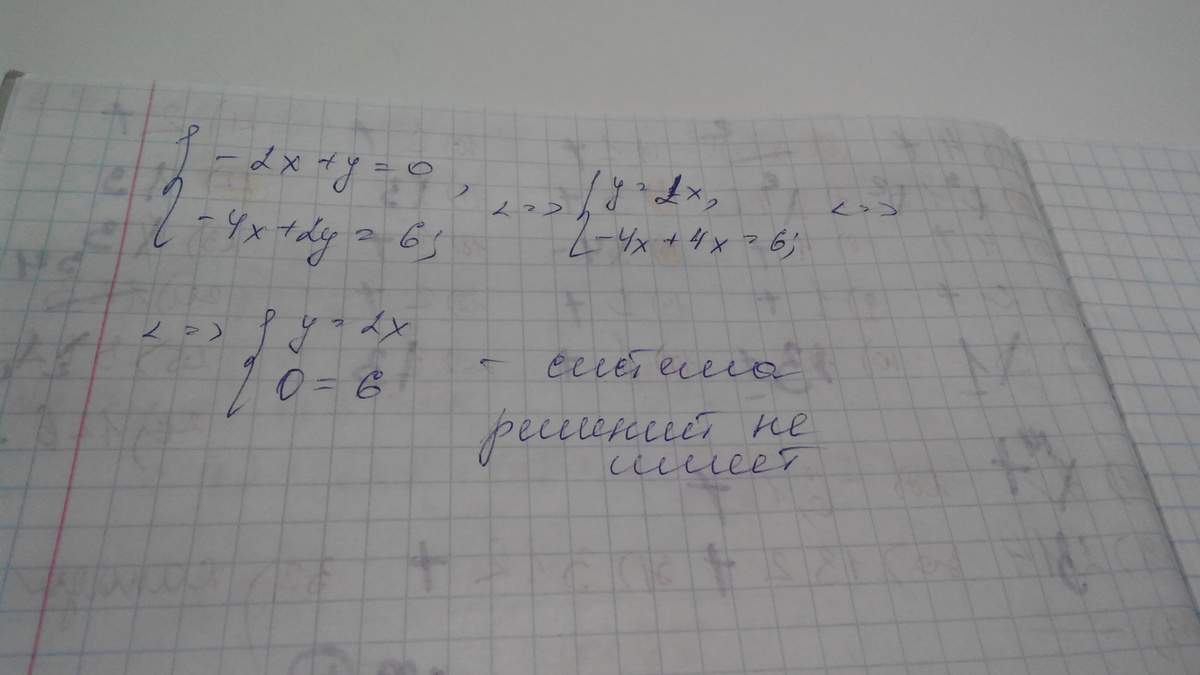 { -2x + y = 0,
-4x + 2y = 6;
<=> { y = 2x,
-4x + 4x = 6;
<=>
<=> { y = 2x
0 = 6
- система
решений не
имеет